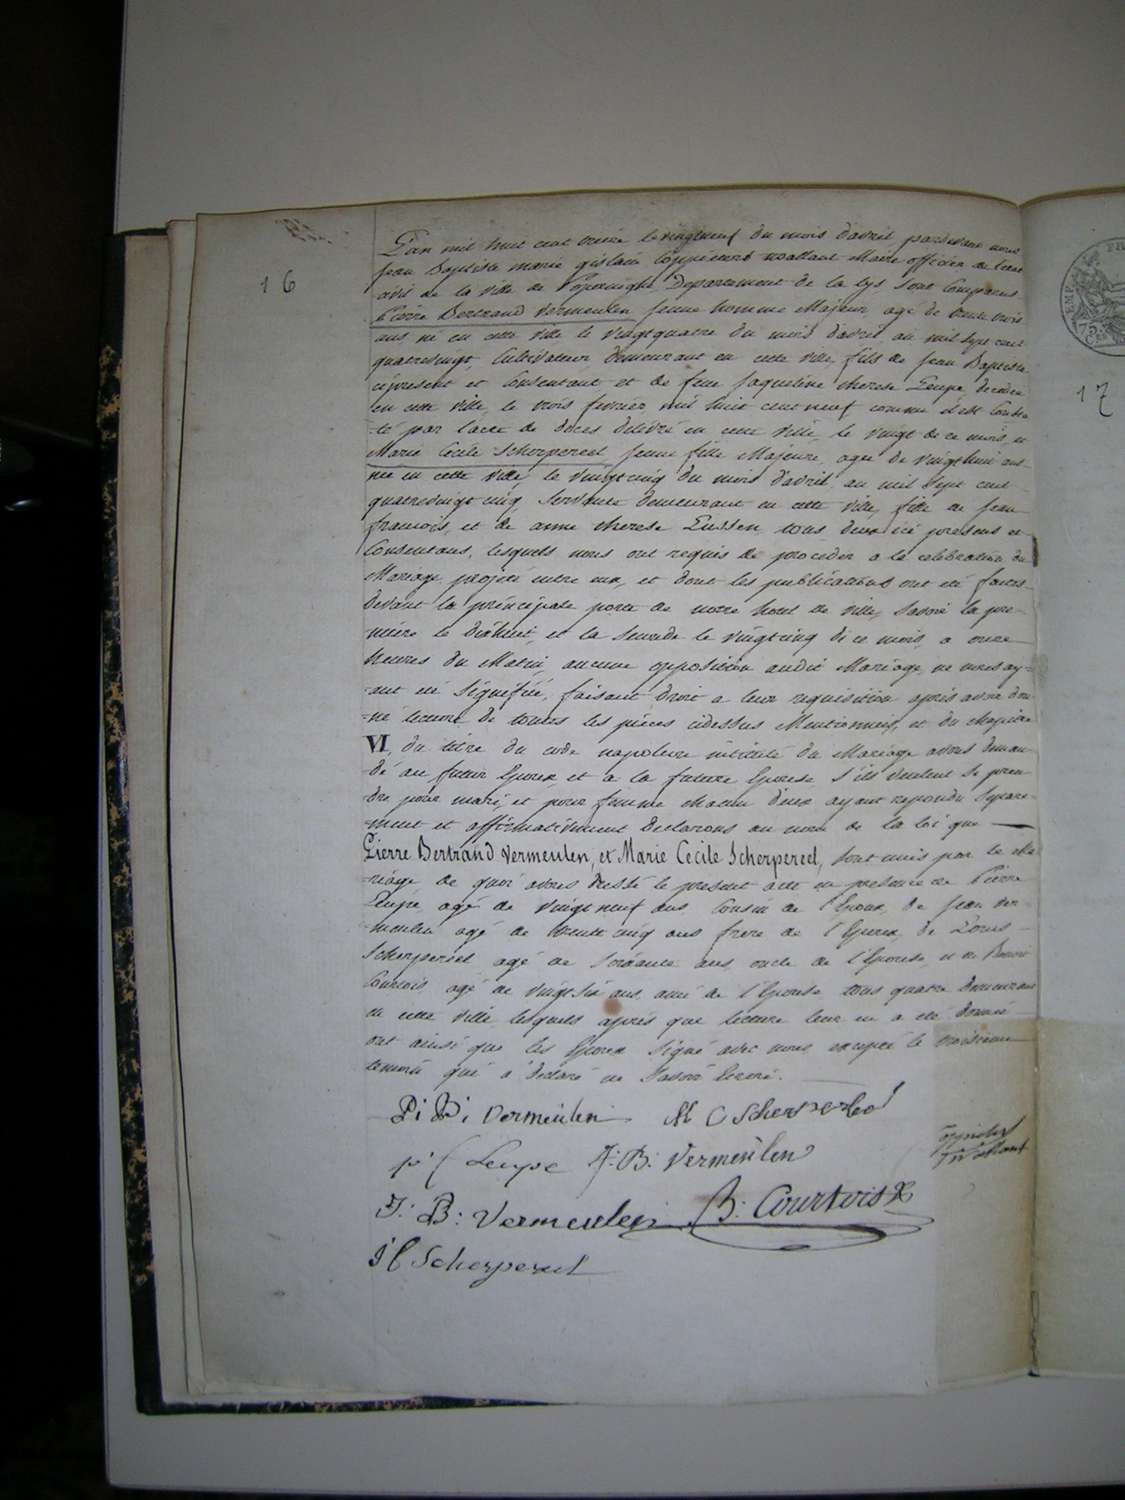 16
L'an mil huit cent treize le vingtneuf du mois d'avril pardevant nous
jean Baptiste marie gislain Coppenens walłant Maire officier de l'etat
civil de la ville de Departement de la Lys sont Comparus
Pierre Bertrand Vermeulen jeune homme Majeur agé de trente trois
ans né en cette ville le vingtquatre du mois d'avril an mil sept cent
quatrevingt, Cultivateur demeurant en cette ville, fils de jean Baptiste
ci present et Consentant et de feue jaqueline therese Leupe decedée
en cette ville le trois fevrier mil huit cent neuf comme il est Consta-
-té par l'acte de deces delivré en cette ville le vingt de ce mois, et
Marie Cécile Scherpereel jeune fille Majeure agée de vingthuit ans
née en cette ville le vingtcinq du mois d'avril an mil sept cent
quatrevingt cinq Servante demeurant en cette ville, fille de jean
francois, et de anne therese tous deux ici presens et
Consentans, lesquels nous ont requis de proceder a la celebration du
Mariage projeté entre eux, et dont les publications ont été faites
devant la principale porte de notre hotel de ville, savoir la pre-
-miere le dixhuit, et la seconde le vingtcinq de ce mois, a onze
heures du Matin, aucune opposition audit Mariage ne nous ay-
-ant été signifiée, faisant droit a leur requisition après avoir don-
-né lecture de toutes les pièces cidessus Mentionnées, et du chapitre
VI, du titre du code napoleon intitulé du Mariage avons deman-
-dé au futur Epoux, et a la future Epouse s'ils veulent se pren-
-dre pour mari, et pour femme chacun d'eux ayant repondu separe-
-ment et affirmativement declarons au nom de la loi que
Pierre Bertrand Vermeulen, et Marie Cecile Scherpereel, sont unis par le Ma-
-riage de quoi avons dressé le present acte en presence de Pierre
Leupe agé de vingt neuf ans Cousin de l'Epoux, de jean Ver-
-meulen agé de trente cinq ans frere de l'Epoux, de Louis
Scherpereel agé de soixante ans oncle de l'Epouse, et de Benoit
Courtois agé de vingt six ans ami de l'Epouse tous quatre demeurans
en cette ville lesquels après que lecture leur en a été donnée
ont ainsi que les Epoux signé avec nous excepté le troisieme
temoin qui a declaré ne savoir ecrire.
Pi Bi Vermeulen M C Scherpereel
Leupe J: B: Vermeulen
J: B: Vermeulen B: Courtois
Scherpereel
17